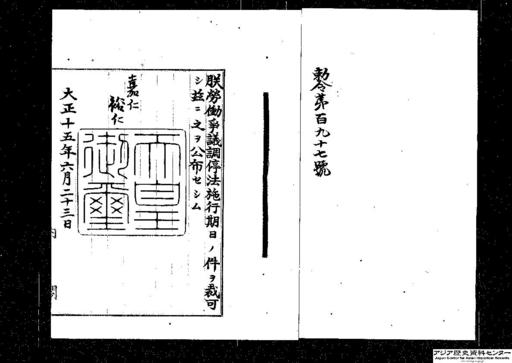 勅令第百九十七號
朕勞働爭議調停法施行期日ノ件ヲ裁可
シ茲ニ之ヲ公布セシム
嘉仁
裕仁
天皇
御璽
大正十五年六月二十三日
内
閣
アジア歴史資料センター
Japan Center for Asian Historical Records